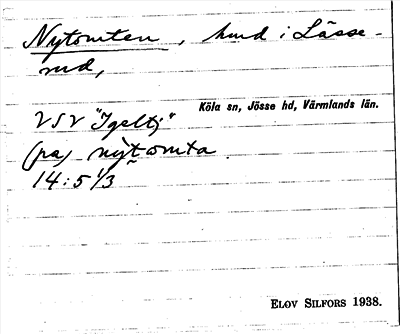 Nytomten, hmd i Lässe-
rud,
Köla sn, Jösse hd, Värmlands län.
VSV "Igeltj"
(pa) nỳtomta
14:5 1/3
ELOV SILFORS 1938.